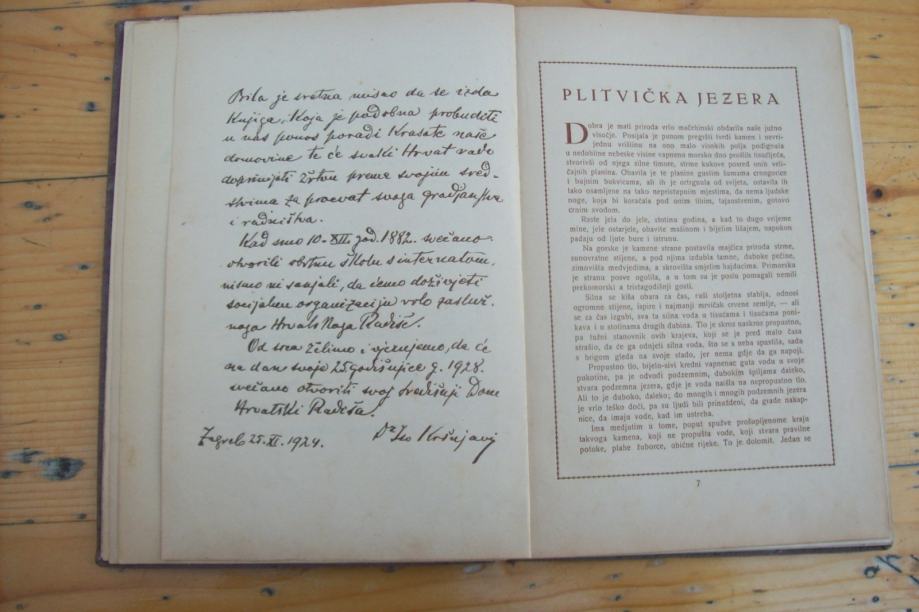 Bila je sretna misao da se izda
Knjiga, Koja je podobna probuditi
u nas ponos poradi Krasote naše
domovine te će svatki Hrvat rado
doprinijeti žrtvu prema svojim sred-
stvima za procvat svoga gradjanstva
i radništva.
Kad smo 10. XII. god. 1882. svečano
otvorili obrtnu školu s internatom,
nismo ni sanjali, da ćemo doživjeti
socijalnu organizaciju vrlo zasluž-
noga Hrvatskoga Radiše.
Od srca želimo i vjerujemo, da će
na dan svoje 25 godišnjice g. 1928.
svečano otvoriti svoj središnji Dom
Hrvatski Radiša.
Zagreb 25. XI. 1924. Dr Iso Kršnjavi
PLITVIČKA JEZERA
Dobra je mati priroda vrlo maćehinski obdarila naše južno
visočje. Posijala je punom pregršti tvrdi kamen i nevri-
jednu vrištinu na ono malo visokih polja podignula
u nedobitne nebeske visine vapneno morsko dno prošlih tisućljeća,
stvorivši od njega silne timore, strme kukove posred onih veli-
čajnih planina. Obavila je te planine gustim šumama crnogorice
i bujnim bukvicama, ali ih je ortrgnula od svijeta, ostavila ih
tako osamljene na tako nepristupnim mjestima, da nema ljudske
noge, koja bi koračala pod onim tihim, tajanstvenim, gotovo
crnim svodom.
Raste jela do jele, stotina godina, a kad to dugo vrijeme
mine, jele ostarjele, obavite mašinom i bijelim lišajem, napokon
padaju od ljute bure i istrunu.
Na gorske je kamene strane postavila majčica priroda strme,
sunovratne stijene, a pod njima izdubla tamne, duboke pećine,
zimovišta medvjedima, a skrovišta smjelim hajducima. Primorska
je stranu posve ogolila, a u tom su je poslu pomagali nemili
prekomorski a tristagodišnji gosti.
Silna se kiša obara za čas, ruši stoljetna stabla, odnosi
ogromne stijene, ispire i najmanji mrvičak crvene zemlje, — ali
se za čas izgubi, sva ta silna voda u tisućama i tisućama poni-
kava i u stotinama drugih dubina. Tlo je skroz naskroz propustno,
pa tužni stanovnik ovih krajeva, koji se je pred malo časa
strašio, da će ga odnijeti silna voda, što se s neba spastila, sada
s brigom gleda na svoje stado, jer nema gdje da ga napoji.
Propustno tlo, bijelo-sivi kredni vapnenac guta vodu u svoje
pukotine, pa je odvodi podzemnim, dubokim špiljama daleko,
stvara podzemna jezera, gdje je voda naišla na nepropustno tlo.
Ali to je duboko, daleko; do mnogih i mnogih podzemnih jezera
je vrlo teško doći, pa su ljudi bili prinuđeni, da grade nakap-
nice, da imaju vode, kad im ustreba.
Ima medjutim u tome, poput spužve prošupljenome kraju
takvoga kamena, koji ne propušta vode, koji stvara pravilne
potoke, plahe žuborce, obične rijeke. To je dolomit. Jedan se
7